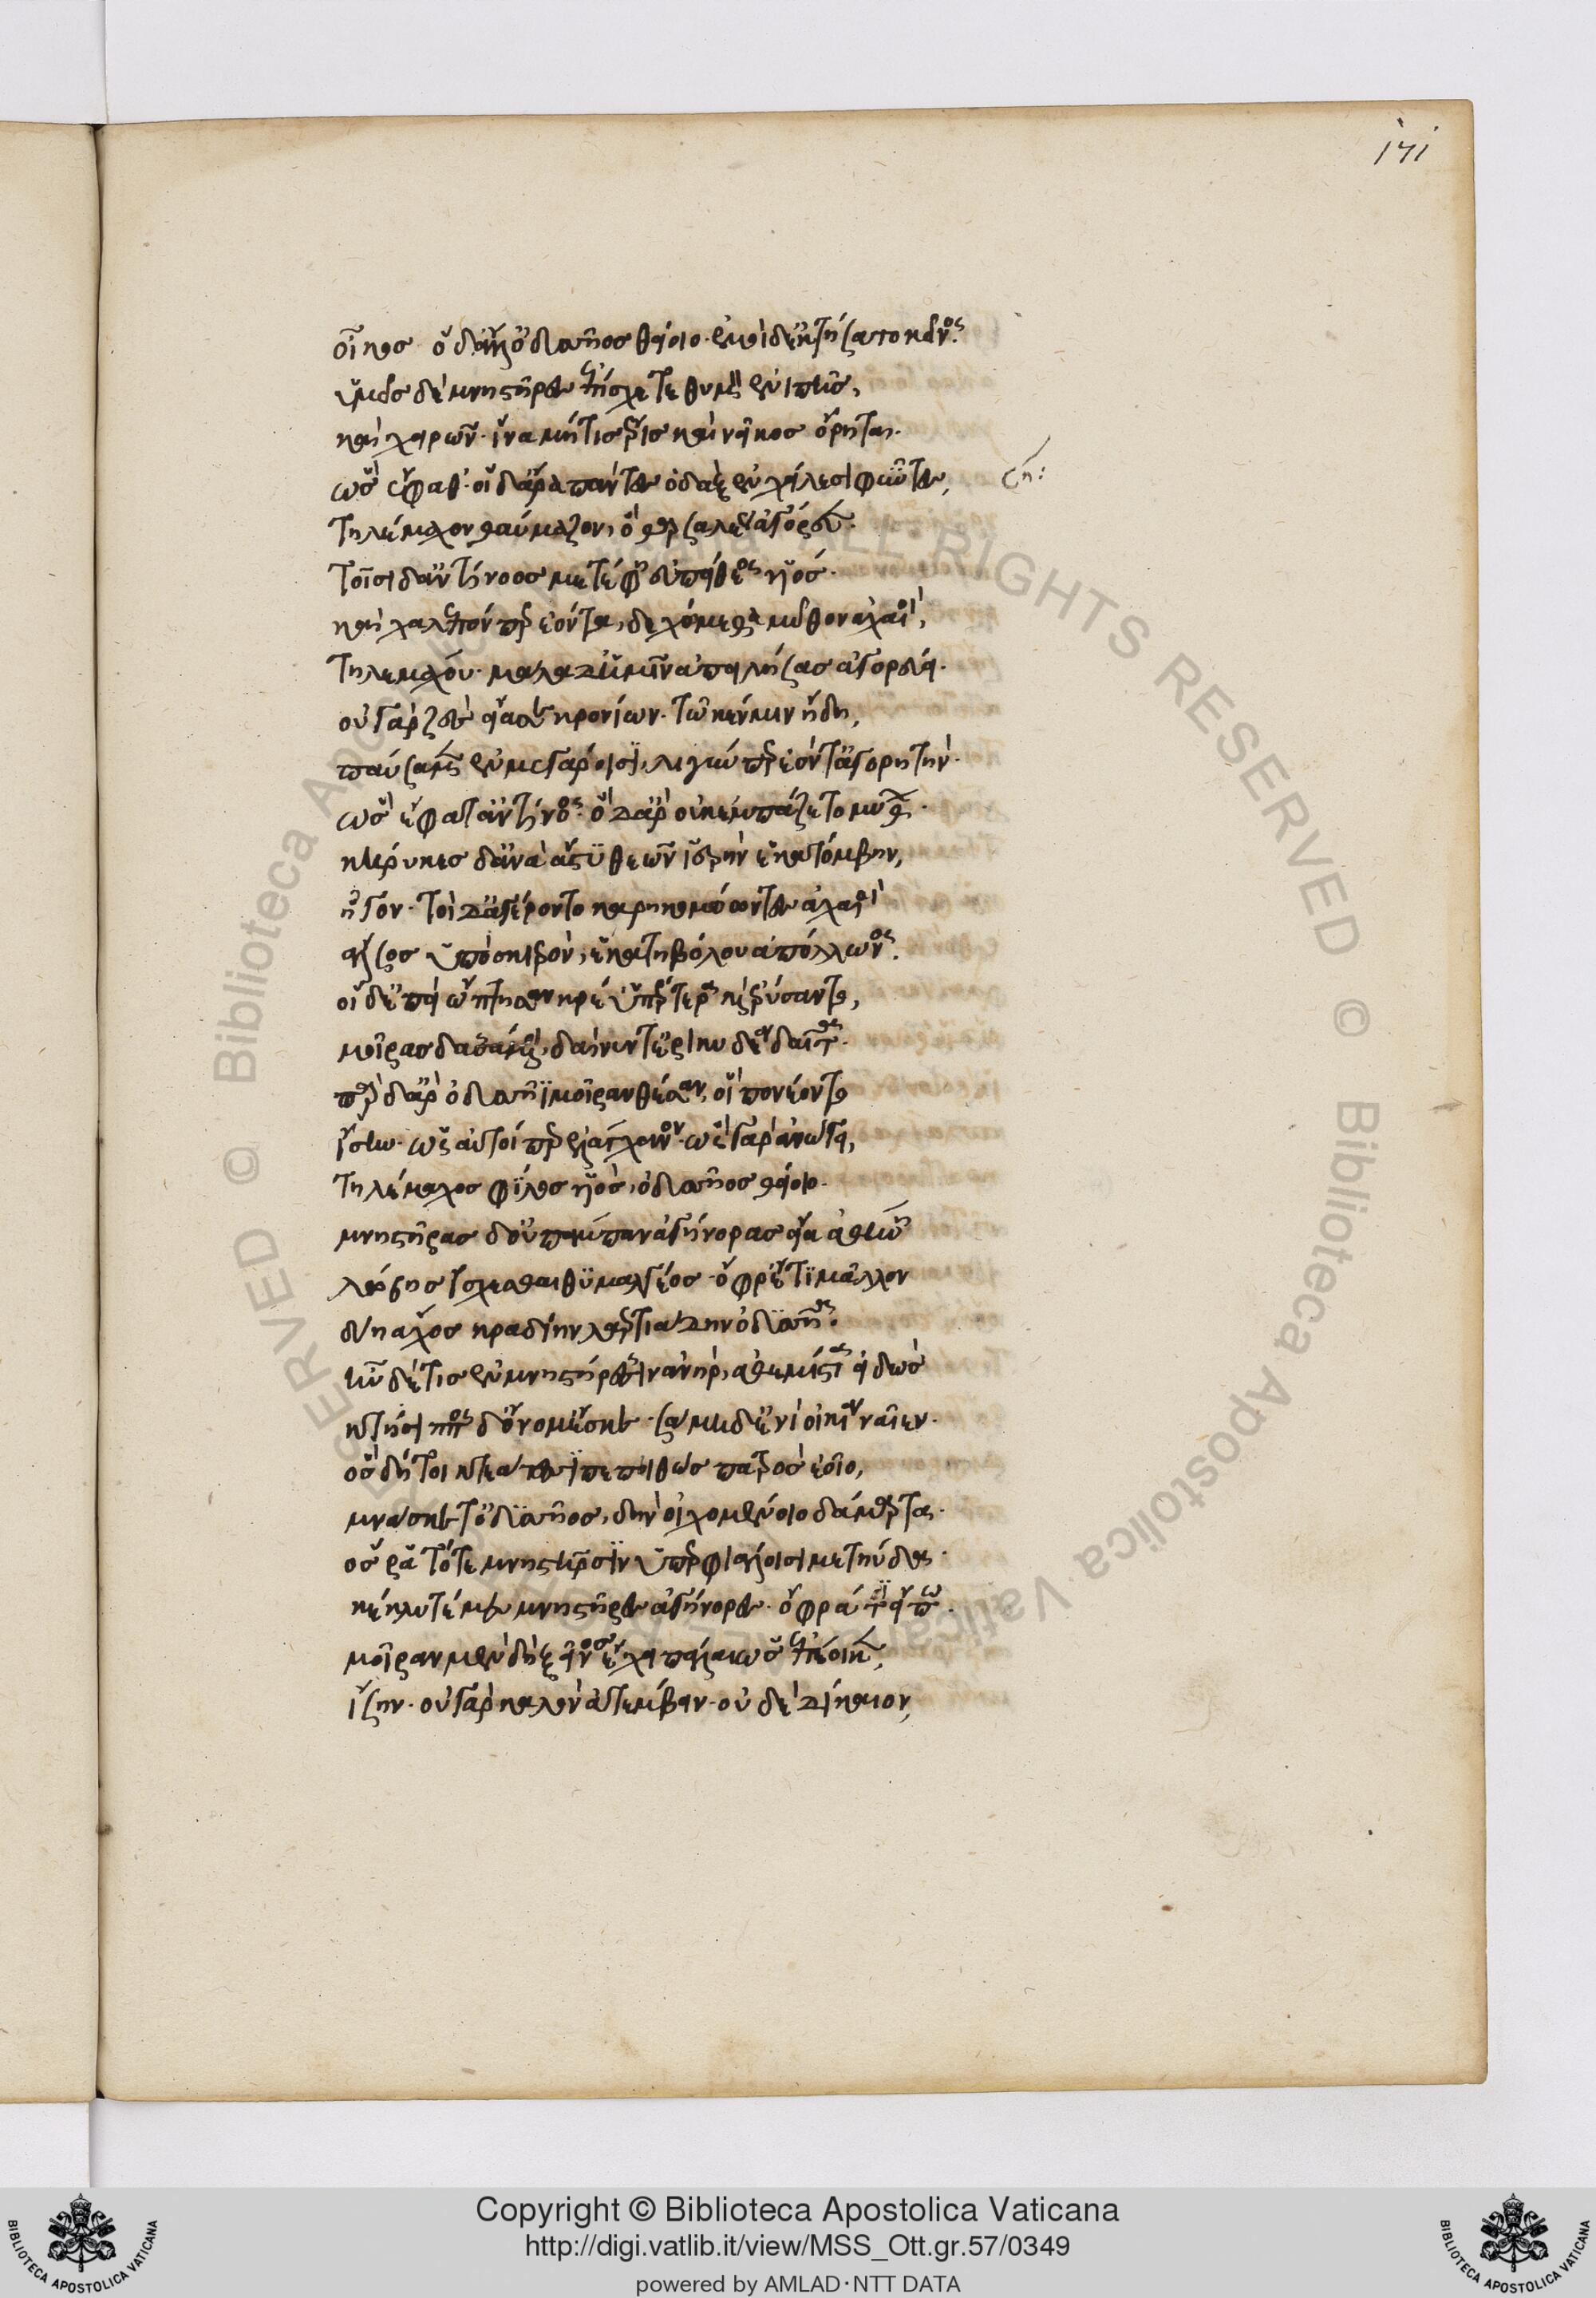 171
οἶκος ὅδ' ἀλλ' ὀδυσσῆος θείοιο· ἐμοὶ δ' ἐκτήσατο κεῖνος.
ὑμεῖς δὲ μνηστῆρες ἐπίσχετε θυμὸν ἐνιπῆς,
καὶ χειρῶν· ἵνα μή τις ἔρις καὶ νεῖκος ὄρηται.
ὣς ἔφαθ'· οἱ δ' ἄρα πάντες ὀδὰξ ἐν χείλεσι φύντες,
ση:
τηλέμαχον θαύμαζον, ὃ θαρσαλέως ἀγόρευεν.
τοῖσι δ' ἀντίνοος μετέφη εὐπείθεος υἱός.
καὶ χαλεπόν περ ἐόντα, δεχώμεθα μῦθον ἀχαιοὶ,
τηλεμάχου· μάλα δ' ἧμιν ἀπειλήσας ἀγορεύει.
οὐ γὰρ ζεὺς εἴασε κρονίων· τῷ κέν μιν ἤδη,
παύσαμεν ἐν μεγάροισι, λιγύν περ ἐόντ' ἀγορητήν.
ὣς ἔφατ' ἀντίνοος· ὁ δ' ἄρ' οὐκ ἐμπάζετο μύθων.
κήρυκες δ' ἀνὰ ἄστυ θεῶν ἱερὴν ἑκατόμβην,
ἦγον· τοὶ δ' ἀγέροντο καρηκομόωντες ἀχαιοὶ
ἄλσος ὕπο σκιερὸν, ἑκατηβόλου ἀπόλλωνος.
οἱ δ' ἐπεὶ ὤπτησαν κρέ' ὑπέρτερα καὶ ἐρύσαντο,
μοίρας δασσάμενοι, δαίνυντ' ἐρικυδέα δαῖτα.
πὰρ δ' ἄρ' ὀδυσσῆϊ μοῖραν θέσαν, οἳ πονέοντο
ἴσην· ὡς αὐτοί περ ἐλάγχανον· ὣς γὰρ ἀνώγει,
τηλέμαχος φίλος υἱὸς, ὀδυσσῆος θείοιο.
μνηστῆρας δ' οὐ πάμπαν ἀγήνορας εἴα ἀθήνη
λώβης ἴσχεσθαι θυμαλγέος· ὄφρ' ἔτι μᾶλλον
δύη ἄχος κραδίην λαερτιάδην ὀδυσῆα.
ἦν δέ τις ἐν μνηστῆρσιν ἀνὴρ, ἀθεμίστια εἰδὼς
κτήσιππος δ' ὄνομ' ἔσκε· σάμη δ' ἐνὶ οἰκία ναῖεν.
ὃς δή τοι κτεάτεσσι πεποιθὼς πατρὸς ἑοῖο,
μνάσκετ' ὀδυσσῆος, δὴν οἰχομένοιο δάμαρτα.
ὅς ῥα τότε μνηστῆρσιν ὑπερφιάλοισι μετηύδα.
κέκλυτέ μευ μνηστῆρες ἀγήνορες· ὄφρά τι εἴπω.
μοῖραν μὲν δὴ ξεῖνος ἔχει πάλαι ὡς ἐπέοικεν,
ἴσην· οὐ γὰρ καλὸν ἀτέμβειν· οὐδὲ δίκαιον,
Copyright © Biblioteca Apostolica Vaticana
http://digi.vatlib.it/view/MSS_Ott.gr.57/0349
powered by AMLAD·NTT DATA